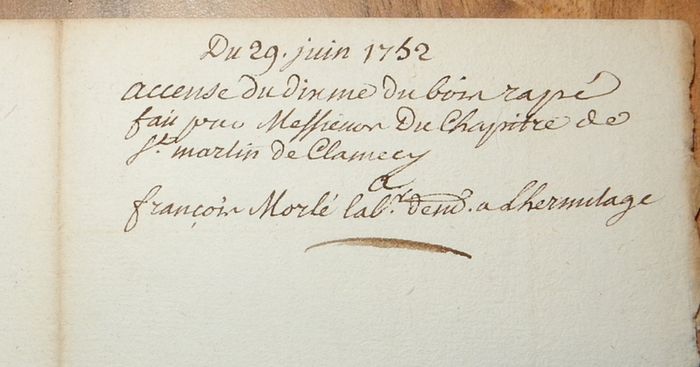 Du 29. juin 1752
accense du dixme du bois rapé
fait par Messieurs Du Chapitre de
St. martin de Clamecy
a
françois Morlé labr. demt. a Lhermitage